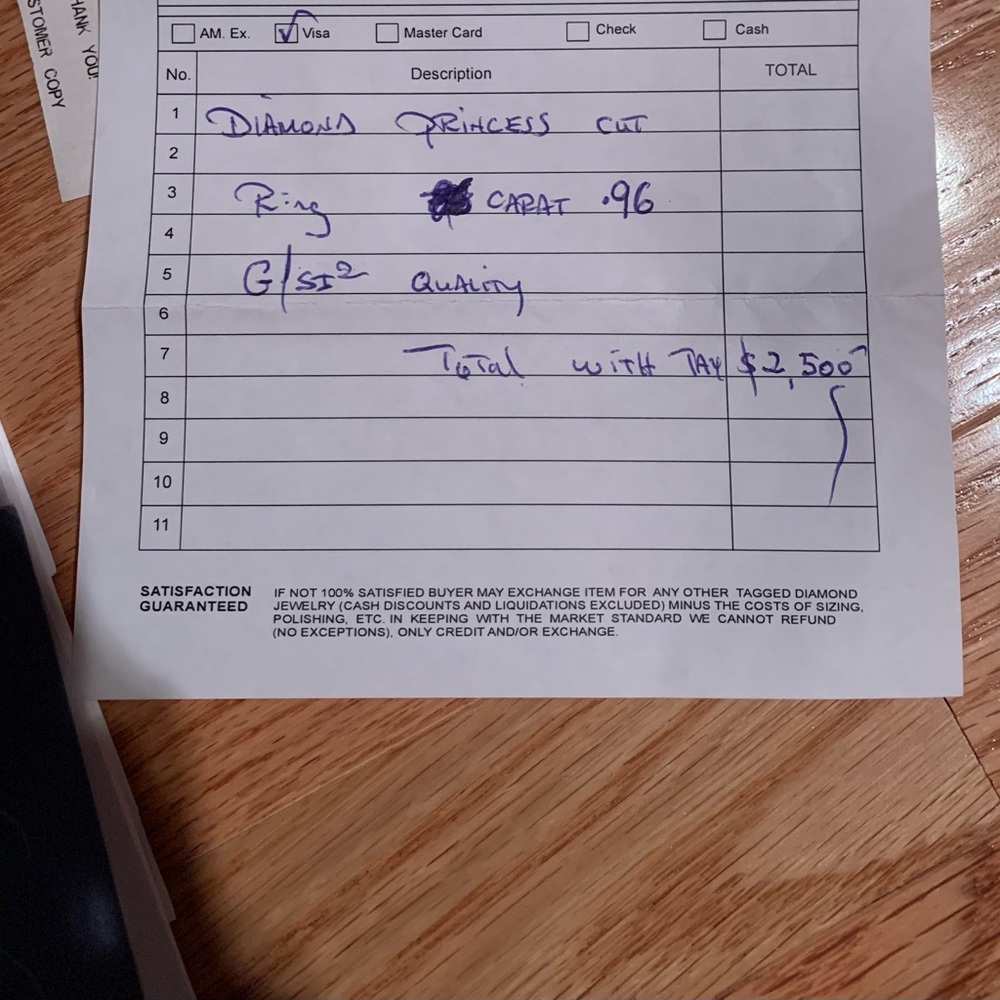 THANK YOU!
CUSTOMER COPY
AM. Ex. Visa Master Card Check Cash
No. Description TOTAL
1 DIAMOND PRINCESS CUT
2
3 Ring CARAT .96
4
5 G/SI2 QUALITY
6
7 Total WITH TAX $2,500
8
9
10
11
SATISFACTION GUARANTEED
IF NOT 100% SATISFIED BUYER MAY EXCHANGE ITEM FOR ANY OTHER TAGGED DIAMOND
JEWELRY (CASH DISCOUNTS AND LIQUIDATIONS EXCLUDED) MINUS THE COSTS OF SIZING,
POLISHING, ETC. IN KEEPING WITH THE MARKET STANDARD WE CANNOT REFUND
(NO EXCEPTIONS), ONLY CREDIT AND/OR EXCHANGE.